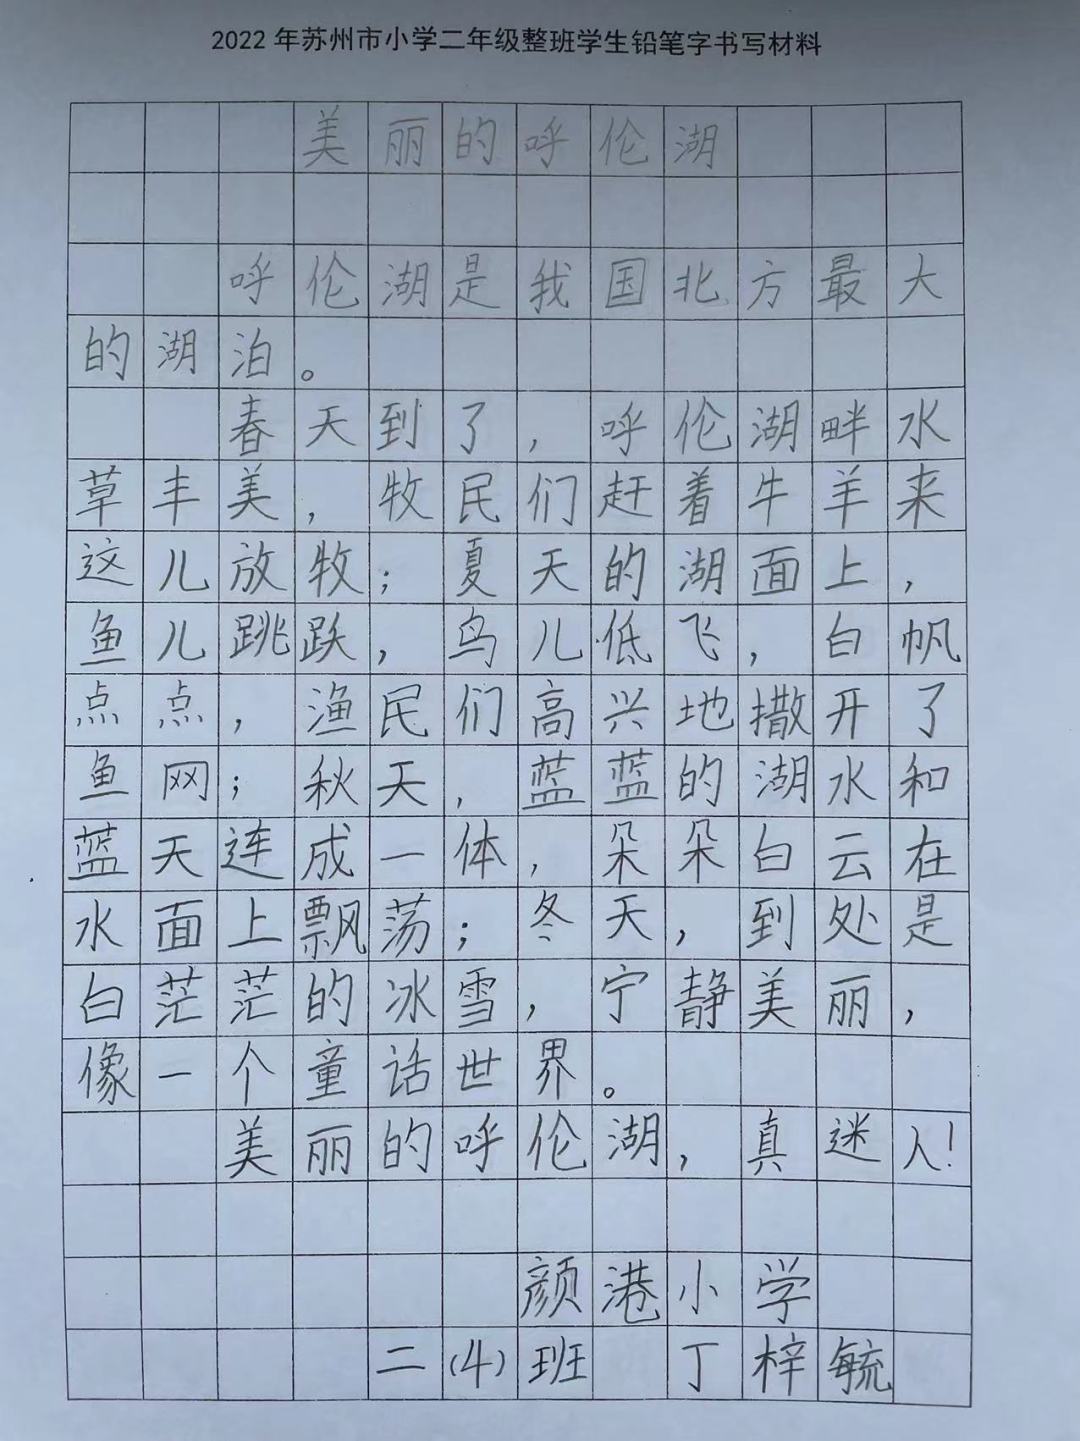 2022年苏州市小学二年级整班学生铅笔字书写材料
美丽的呼伦湖
呼伦湖是我国北方最大
的湖泊。
春天到了，呼伦湖畔水
草丰美，牧民们赶着牛羊来
这儿放牧；夏天的湖面上，
鱼儿跳跃，鸟儿低飞，白帆
点点，渔民们高兴地撒开了
鱼网；秋天，蓝蓝的湖水和
蓝天连成一体，朵朵白云在
水面上飘荡；冬天，到处是
白茫茫的冰雪，宁静美丽，
像一个童话世界。
美丽的呼伦湖，真迷人！
颜港小学
二(4)班 丁梓毓